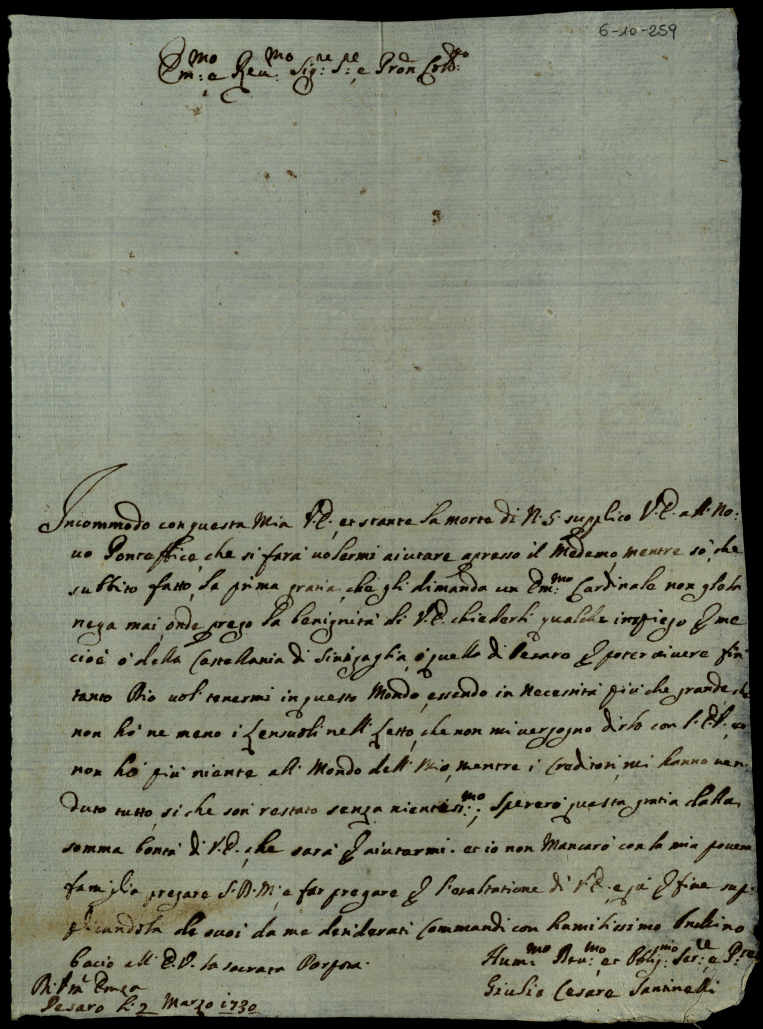 6-10-259
Em:mo e Reu:mo Sig:re S:re e Pron Col:mo
Incommodo con questa Mia V.E., et stante la morte di N.S. supplico V.E. all No:
uo Pontefice, che si farà uolermi aiutare apresso il Medemo, mentre sò, che
subbito fatto, la prima gratia, che gli dimanda un Em:mo Cardinale non gliela
nega mai, onde prego la benignità di V.E. chiederli qualche impiego per me
cioè ò della Castellania di Sinigaglia, ò quello di Pesaro per poter uiuere fin
tanto Dio uol tenermi in questo Mondo, essendo in necessità più che grande, che
non hò ne meno i Lensuoli nell Letto, che non mi vergogno dirlo con V.E.
non hò più niente all Mondo dell Mio, mentre i Creditori mi hanno uen
duto tutto, si che son restato senza nientesi:mo; Sperero questa gratia dalla
somma bontà di V.E., che sarà per aiutarmi. et io non Mancarò con la mia pouera
famiglia pregare S.D.M. e far pregare per l'esaltatione di V.E. e quì per fine sup
plicandola de suoi da me desiderati Commandi con humilissimo Inchino
bacio all E.V. la sacrata Porpora.
Di V'ra Emza
Pesaro li 2 Marzo 1730
Hum:mo Deu:mo et Oblig:mo Ser:re
Giulio Cesare Santinelli